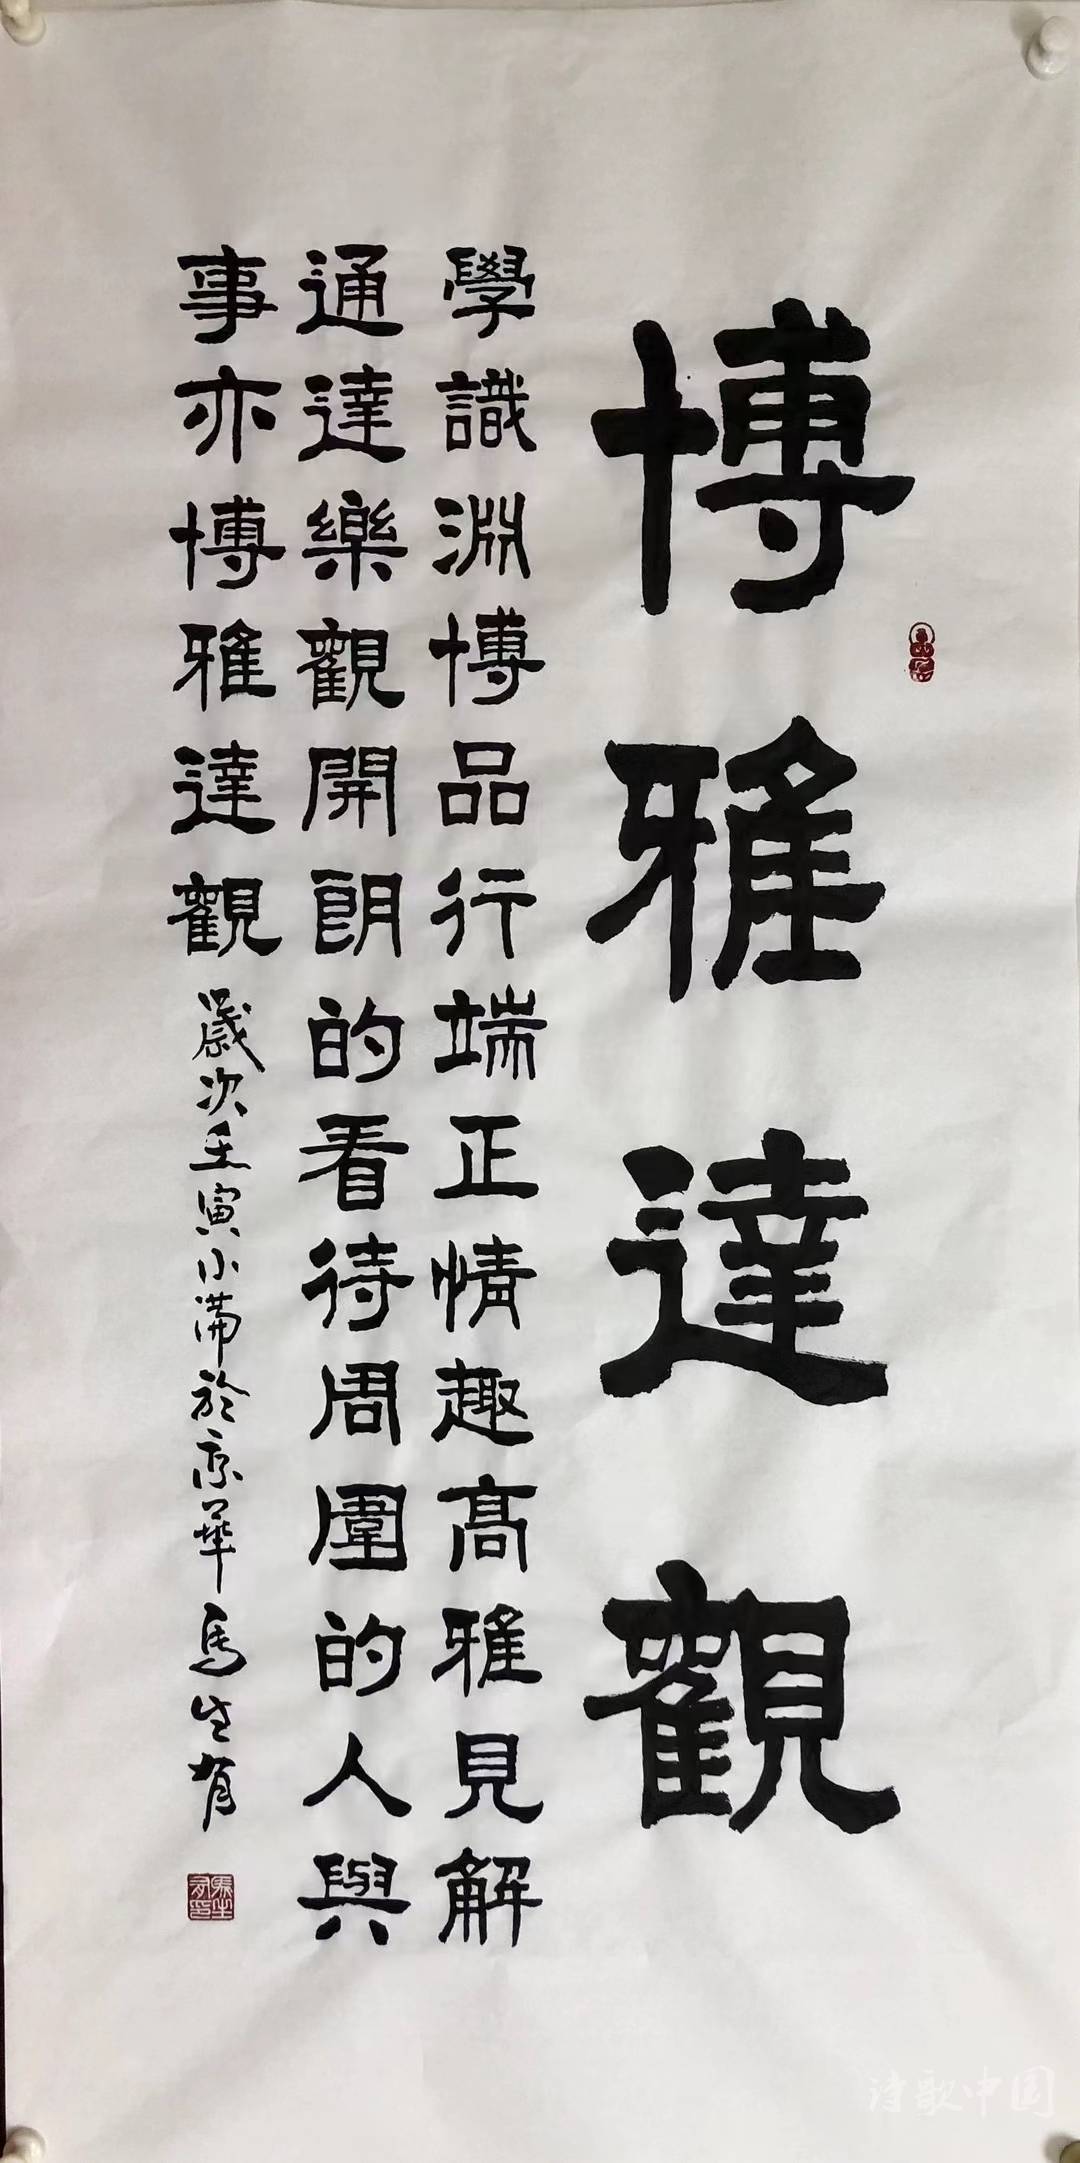 博雅達觀
學識淵博品行端正情趣高雅見解
通達樂觀開朗的看待周圍的人與
事亦博雅達觀
歲次壬寅小滿於京華馬生有
诗歌中国